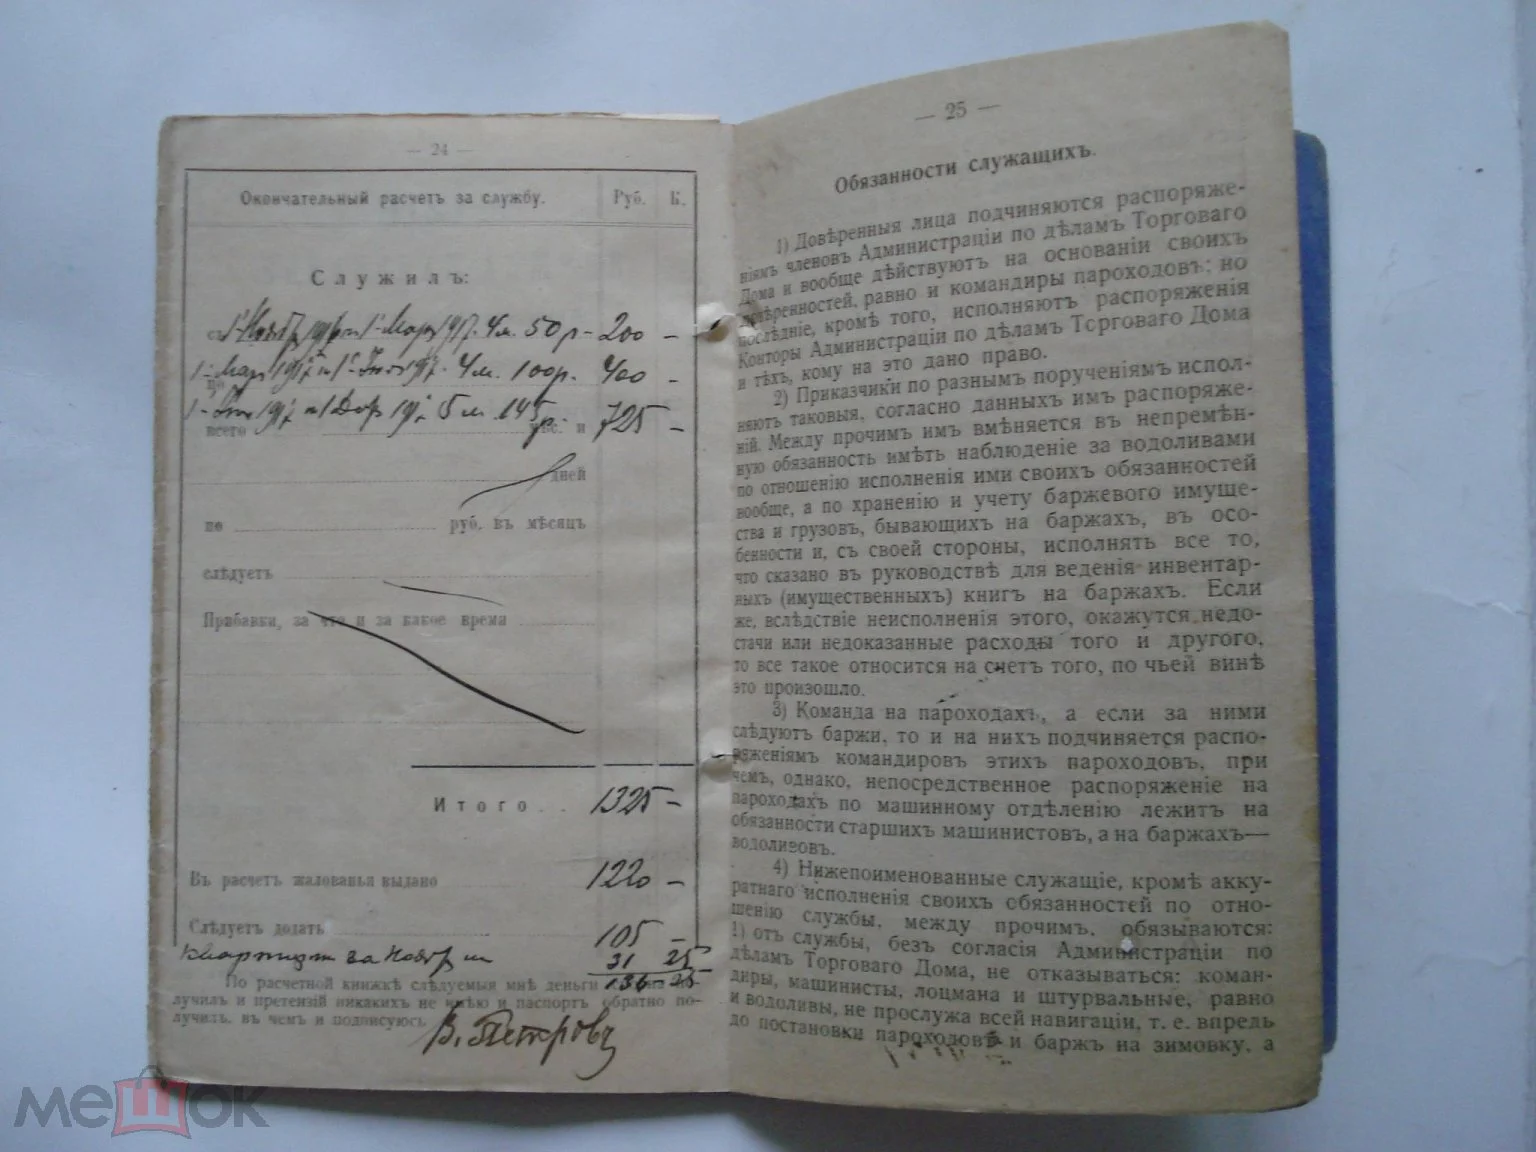 — 24 —
Окончательный расчетъ за службу. Руб. К.
Служилъ:
с 1 Нояб 1916 по 1 Мар 1917. 4 м. 50 р - 200 —
1 - Мар 1917 1 4 м. 100 р. 400 -
1 - 5 м. 145 р 725 —
всего мѣс. и
дней
по руб. въ мѣсяцъ
слѣдуетъ
Прибавки, за что и за какое время
Итого . . 1325 —
Въ расчетъ жалованья выдано 1220 —
Слѣдуетъ додать 105 —
за Ноябр 31 25
По расчетной книжкѣ слѣдуемыя мнѣ деньги 136 25
лучилъ и претензій никакихъ не имѣю и паспортъ обратно по-
лучилъ, въ чемъ и подписуюсь В. Петровъ
— 25 —
Обязанности служащихъ.
1) Довѣренныя лица подчиняются распоряже-
ніямъ членовъ Администраціи по дѣламъ Торговаго
Дома и вообще дѣйствуютъ на основаніи своихъ
довѣренностей, равно и командиры пароходовъ; но
послѣдніе, кромѣ того, исполняютъ распоряженія
Конторы Администраціи по дѣламъ Торговаго Дома
и тѣхъ, кому на это дано право.
2) Приказчики по разнымъ порученіямъ испол-
няютъ таковыя, согласно данныхъ имъ распоряже-
ній. Между прочимъ имъ вмѣняется въ непремѣн-
ную обязанность имѣть наблюденіе за водоливами
по отношенію исполненія ими своихъ обязанностей
вообще, а по храненію и учету баржевого имуще-
ства и грузовъ, бывающихъ на баржахъ, въ осо-
бенности и, съ своей стороны, исполнять все то,
что сказано въ руководствѣ для веденія инвентар-
ныхъ (имущественныхъ) книгъ на баржахъ. Если
же, вслѣдствіе неисполненія этого, окажутся недо-
стачи или недоказанные расходы того и другого,
то все такое относится на счетъ того, по чьей винѣ
это произошло.
3) Команда на пароходахъ, а если за ними
слѣдуютъ баржи, то и на нихъ подчиняется распо-
ряженіямъ командировъ этихъ пароходовъ, при
чемъ, однако, непосредственное распоряженіе на
пароходахъ по машинному отдѣленію лежитъ на
обязанности старшихъ машинистовъ, а на баржахъ—
водоливовъ.
4) Нижепоименованные служащіе, кромѣ акку-
ратнаго исполненія своихъ обязанностей по отно-
шенію службы, между прочимъ, обязываются:
1) отъ службы, безъ согласія Администраціи по
дѣламъ Торговаго Дома, не отказываться: коман-
диры, машинисты, лоцмана и штурвальные, равно
и водоливы, не прослужа всей навигаціи, т. е. впредь
до постановки пароходовъ и баржъ на зимовку, а
мешок